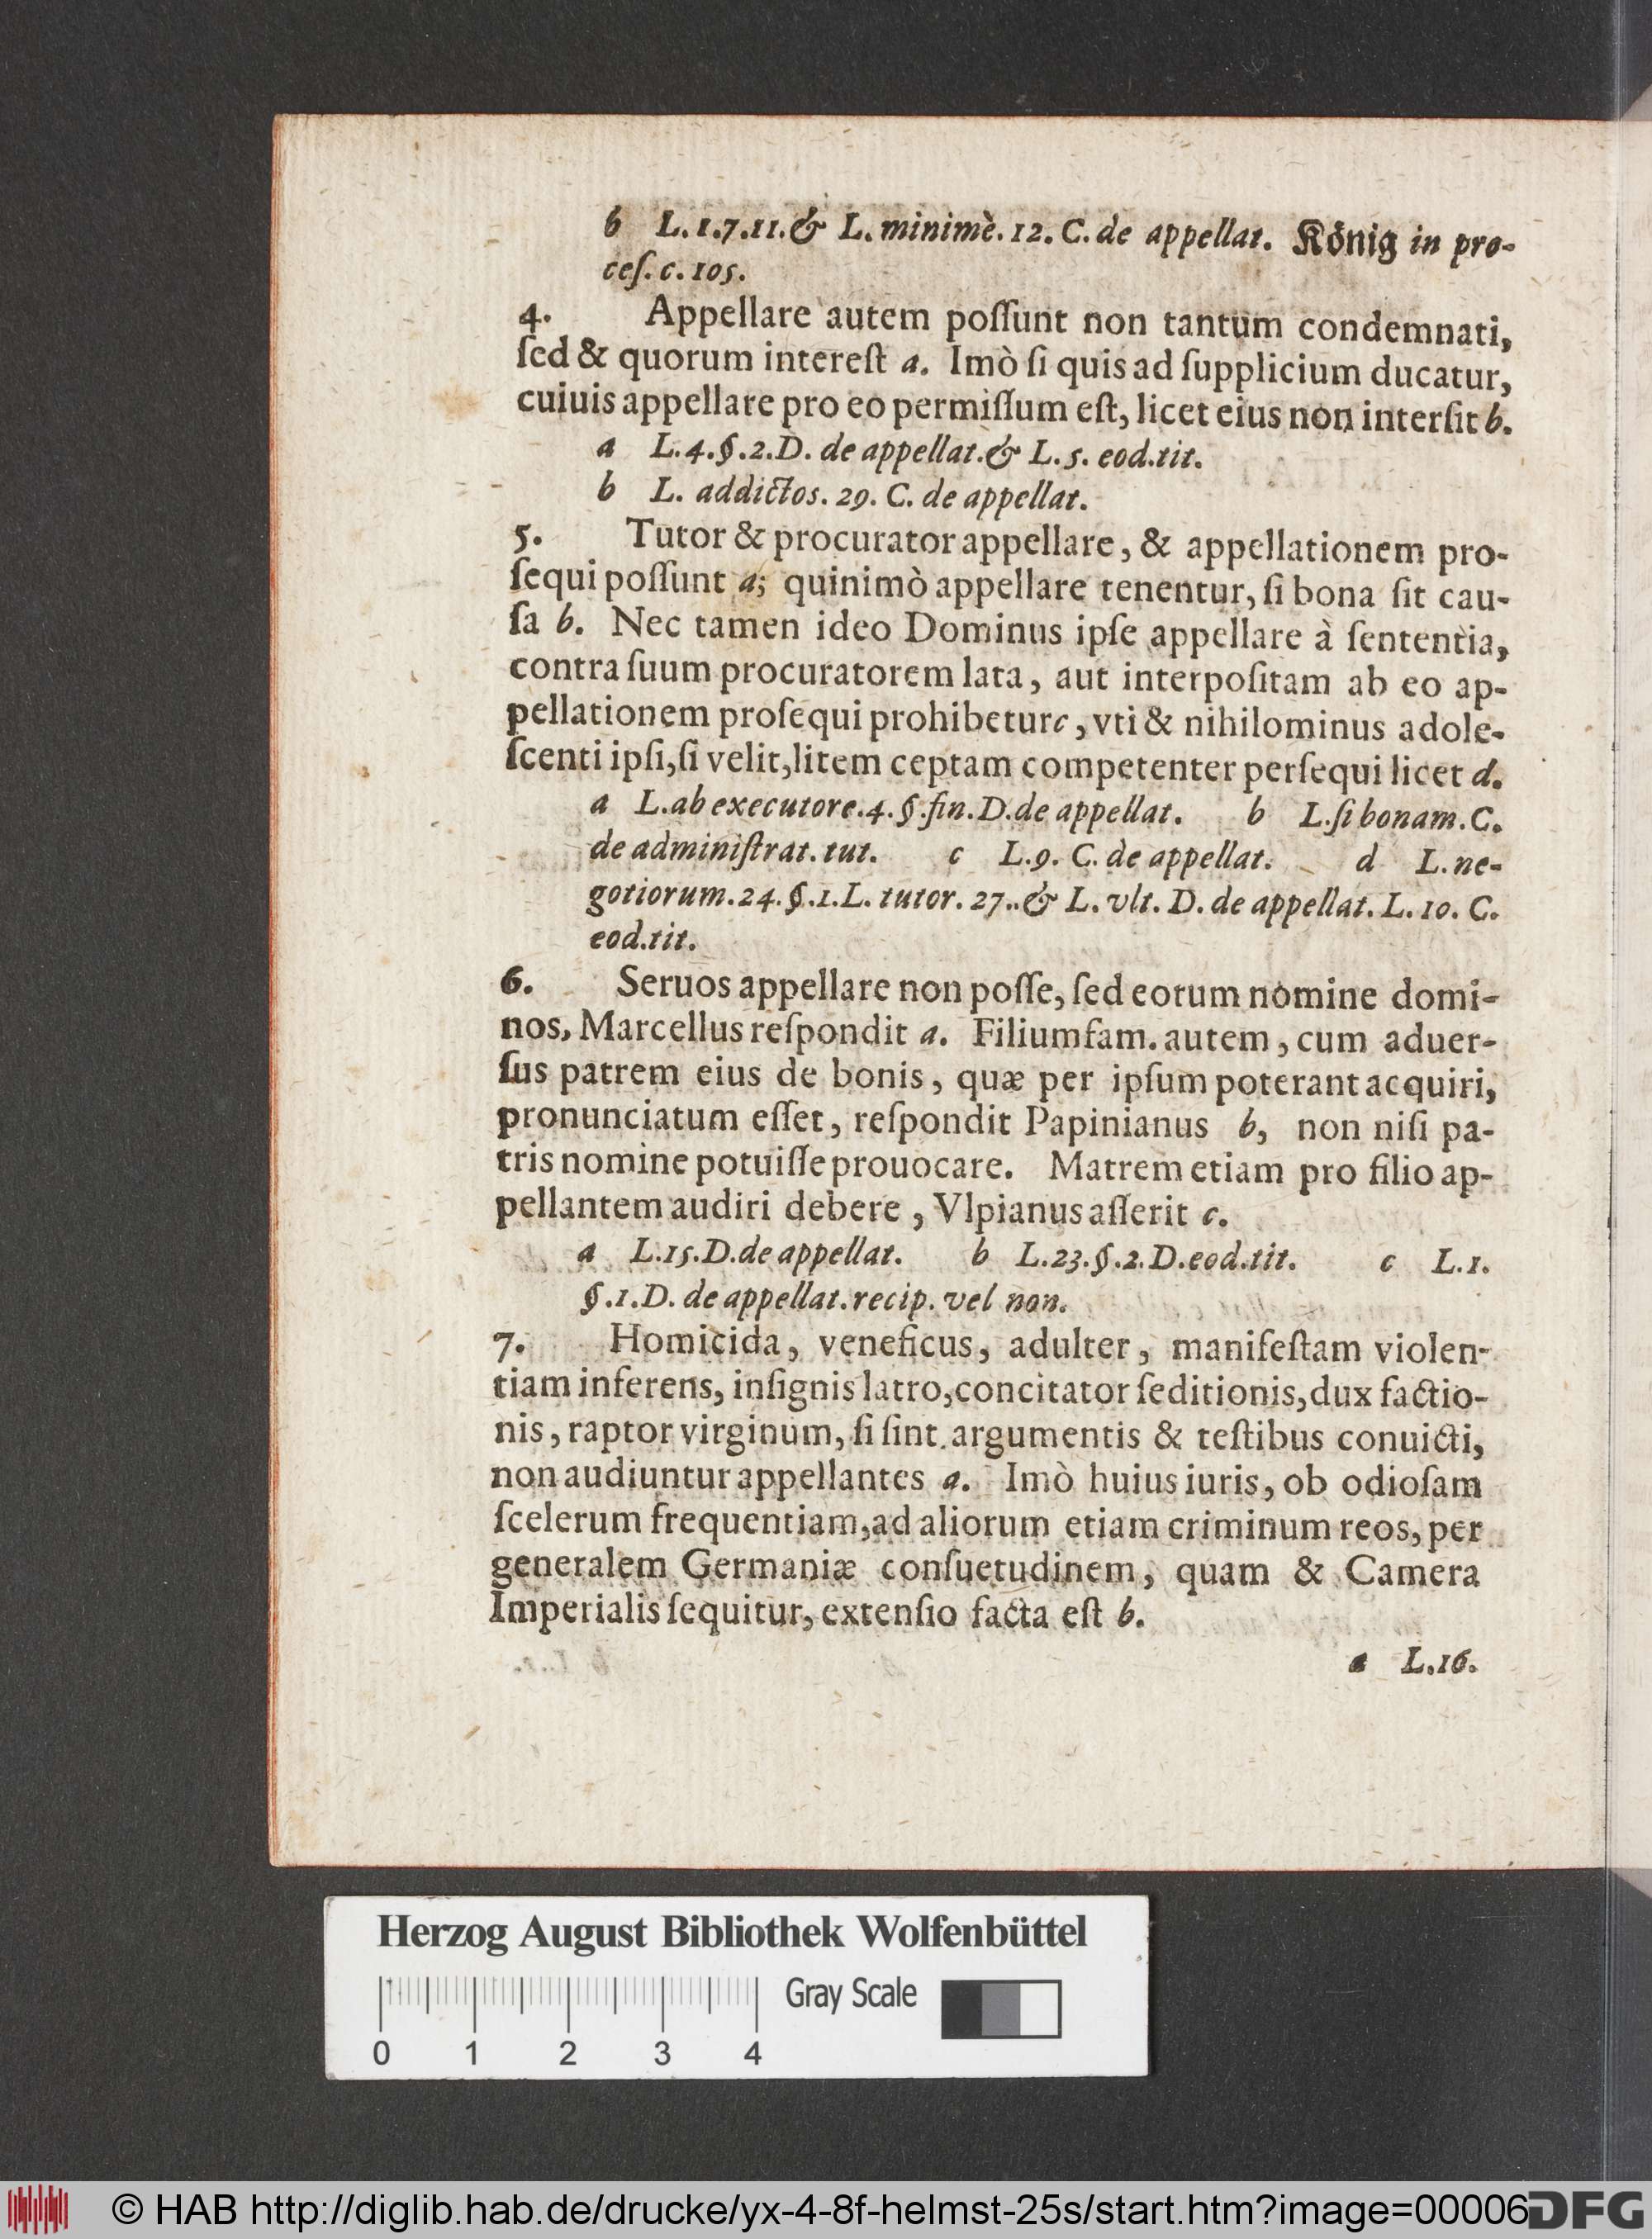 b L.1.7.11.& L. minimè. 12. C. de appellat. König in pro-
ceſ. c. 105.
4. Appellare autem poſſunt non tantum condemnati,
ſed & quorum intereſt a. Imò ſi quis ad ſupplicium ducatur,
cuiuis appellare pro eo permiſſum eſt, licet eius non interſit b.
a L.4.§.2.D. de appellat.& L.5. eod.tit.
b L. addictos. 29. C. de appellat.
5. Tutor & procurator appellare, & appellationem pro-
ſequi poſſunt a; quinimò appellare tenentur, ſi bona ſit cau-
ſa b. Nec tamen ideo Dominus ipſe appellare à ſententia,
contra ſuum procuratorem lata, aut interpoſitam ab eo ap-
pellationem proſequi prohibetur c, vti & nihilominus adole-
ſcenti ipſi, ſi velit, litem ceptam competenter perſequi licet d.
a L.ab executore.4.§.fin.D.de appellat. b L.ſi bonam.C.
de adminiſtrat. tut. c L.9. C. de appellat. d L. ne-
gotiorum.24.§.1.L. tutor. 27..& L. vlt. D. de appellat. L. 10. C.
eod.tit.
6. Seruos appellare non poſſe, ſed eorum nomine domi-
nos, Marcellus reſpondit a. Filiumfam. autem, cum aduer-
ſus patrem eius de bonis, quæ per ipſum poterant acquiri,
pronunciatum eſſet, reſpondit Papinianus b, non niſi pa-
tris nomine potuiſſe prouocare. Matrem etiam pro filio ap-
pellantem audiri debere, Vlpianus aſſerit c.
a L.15.D.de appellat. b L.23.§.2.D.eod.tit. c L.1.
§.1.D. de appellat.recip. vel non.
7. Homicida, veneficus, adulter, manifeſtam violen-
tiam inferens, inſignis latro, concitator ſeditionis, dux factio-
nis, raptor virginum, ſi ſint argumentis & teſtibus conuicti,
non audiuntur appellantes a. Imò huius iuris, ob odioſam
ſcelerum frequentiam, ad aliorum etiam criminum reos, per
generalem Germaniæ conſuetudinem, quam & Camera
Imperialis ſequitur, extenſio facta eſt b.
a L.16.
Herzog August Bibliothek Wolfenbüttel
Gray Scale
0 1 2 3 4
© HAB http://diglib.hab.de/drucke/yx-4-8f-helmst-25s/start.htm?image=00006
DFG